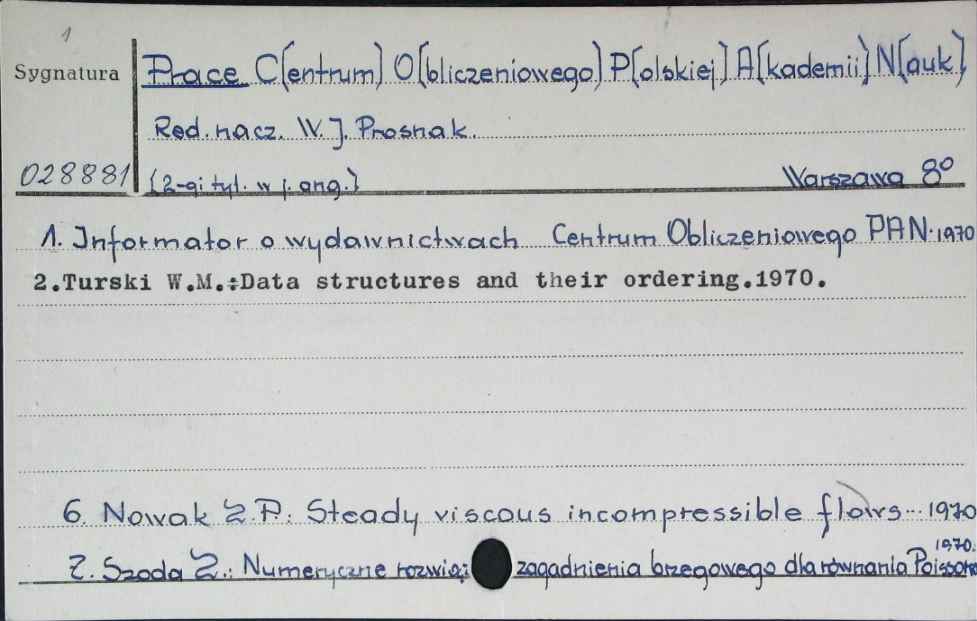 1
Sygnatura
Prace C[entrum] O[bliczeniowego] P[olskiej] A[kademii] N[auk]
Red. nacz. W. J. Prosnak.
028881
(2-gi tyt. w j. ang.)
Warszawa 8°
1. Informator o wydawnictwach Centrum Obliczeniowego PAN. 1970
2.Turski W.M.:Data structures and their ordering.1970.
6. Nowak Z.P.: Steady viscous incompressible flows... 1970
7. Szoda Z.: Numeryczne zagadnienia brzegowego dla równania 1970.